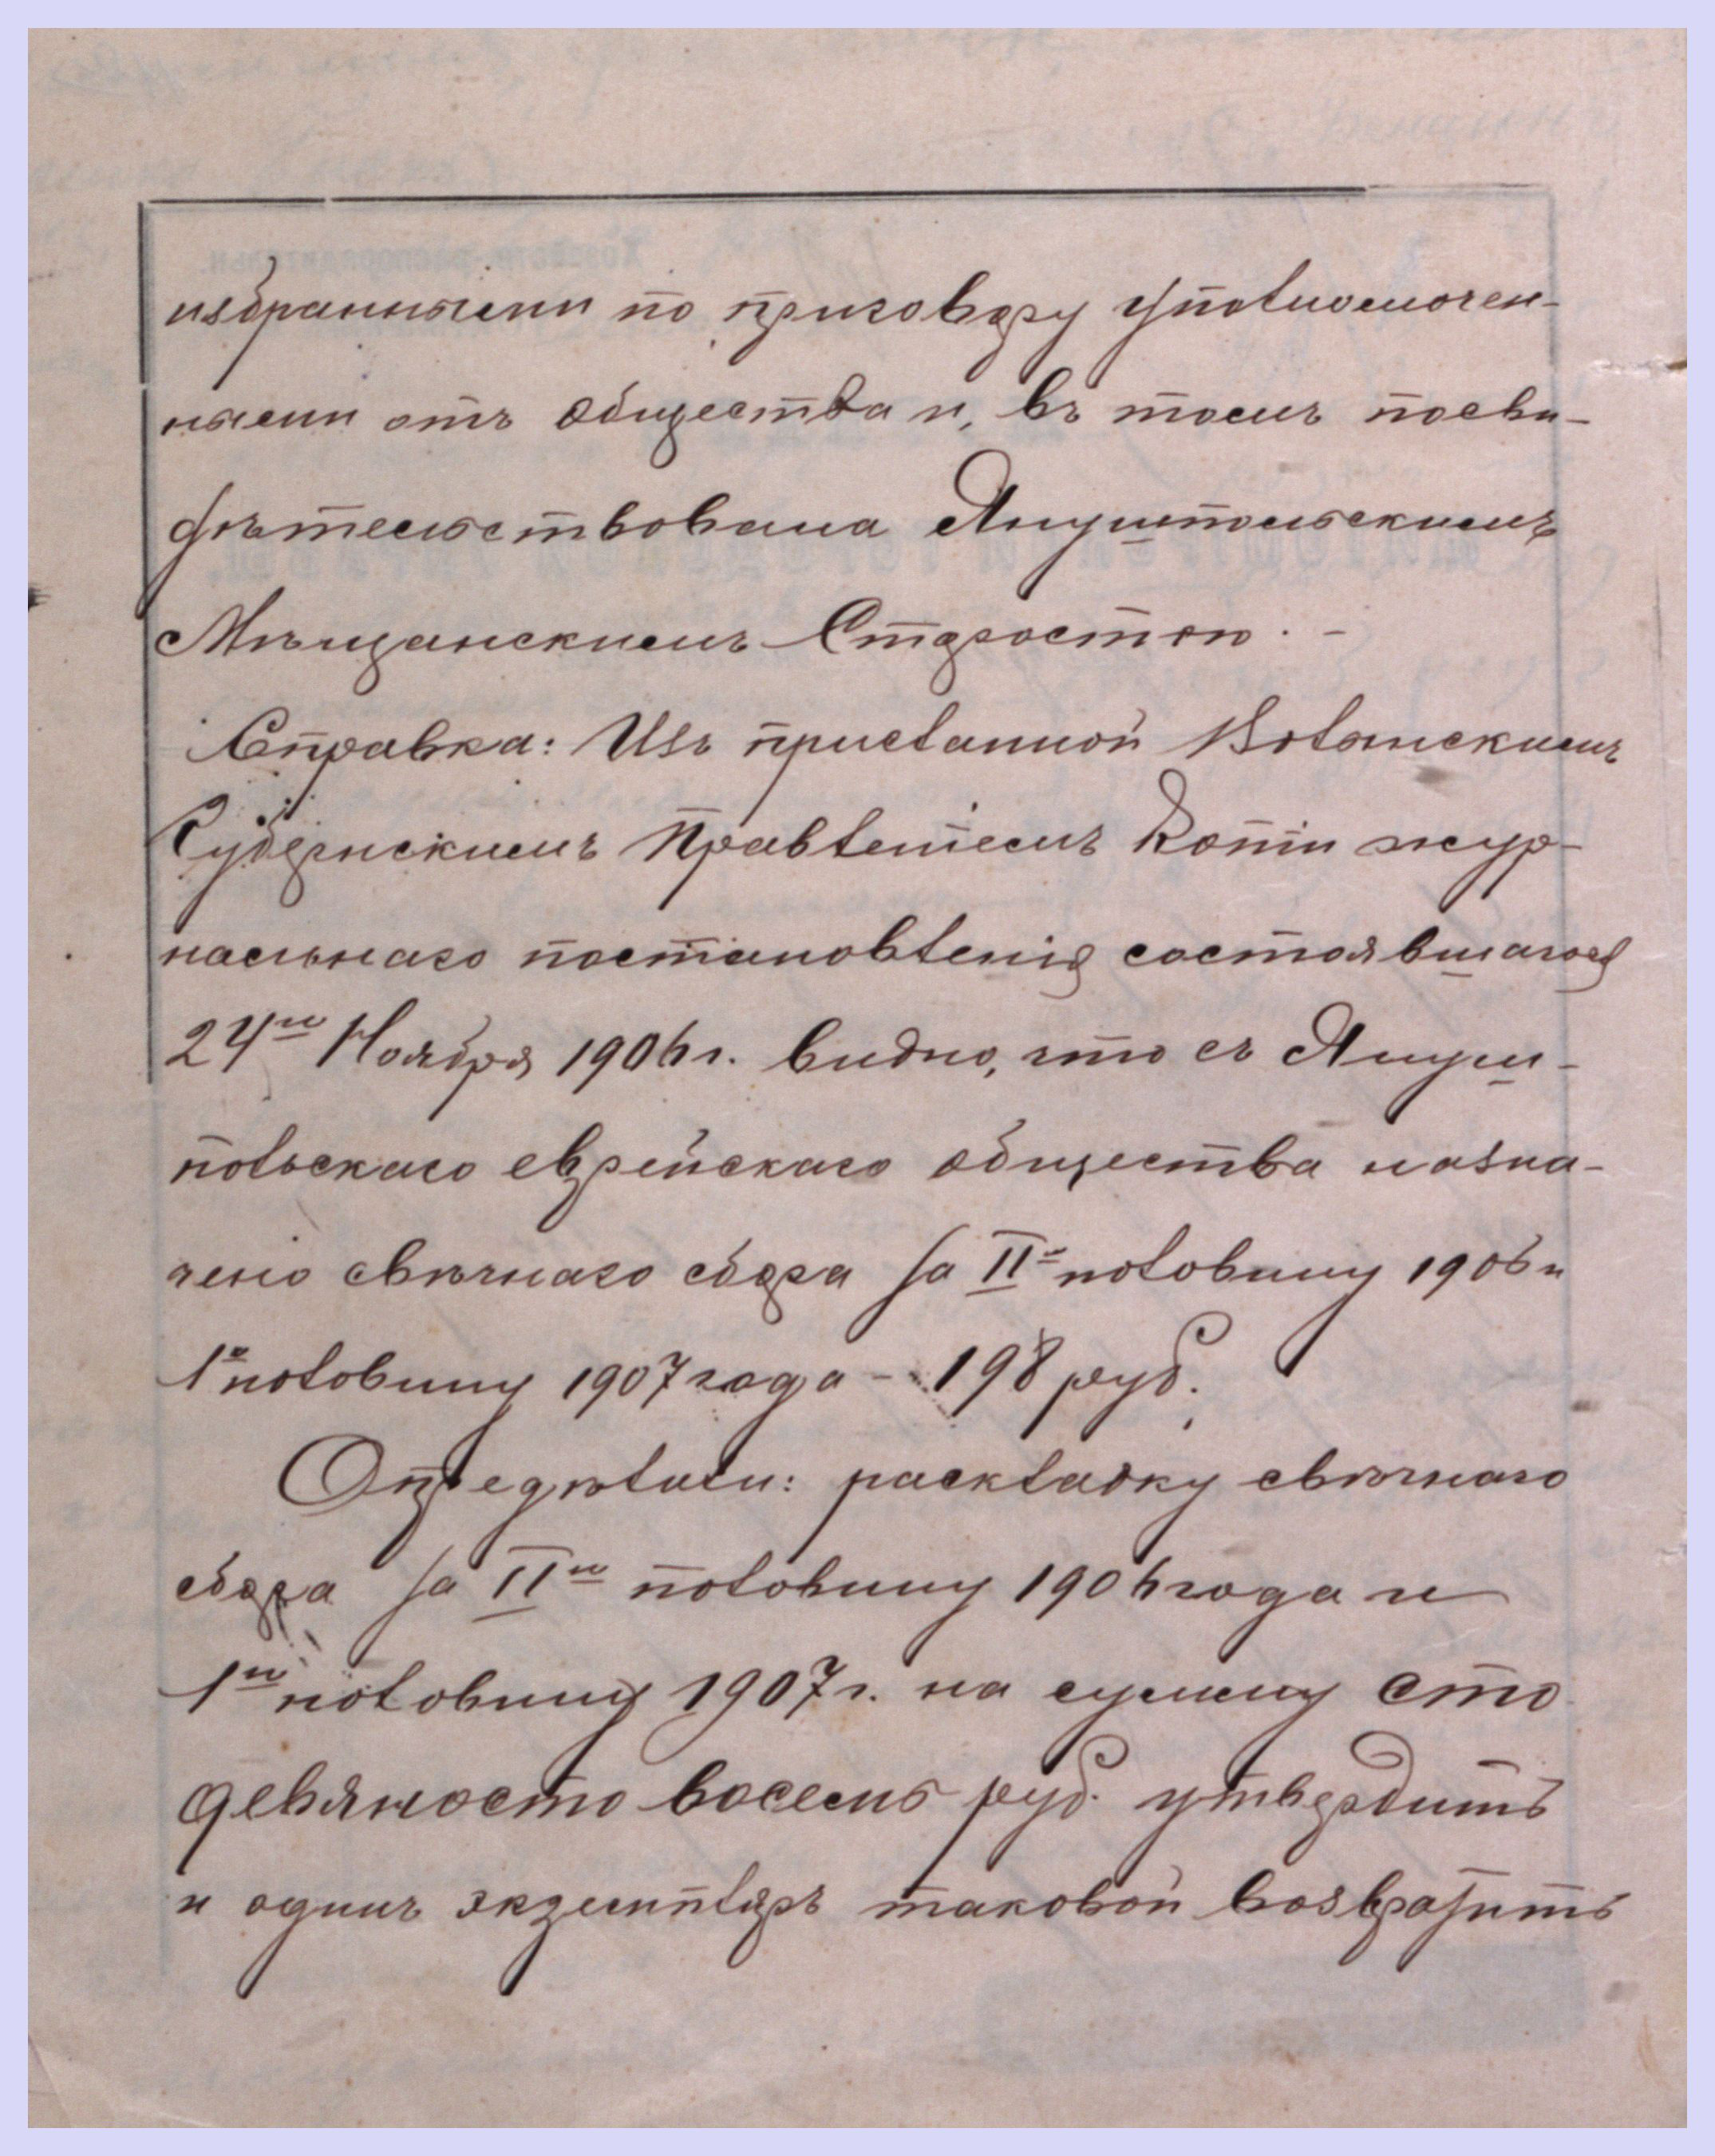 избранными по приговору уполномочен-
ными отъ общества и, въ томъ посви-
дѣтельствована Янушпольскимъ
Мѣщанскимъ Старостою. -
Справка: Изъ присланной Волынскимъ
Губернскимъ Правленіемъ копіи жур-
нальнаго постановленія состоявшагося
24го Ноября 1906 г. видно, что съ Януш-
польскаго еврейскаго общества назна-
чено свѣчнаго сбора за II ю половину 1906 и
1ю половину 1907 года - 198 руб.
Опредѣлили: раскладку свѣчнаго
сбора за II ю половину 1906 года и
1ю половину 1907 г. на сумму сто
девяносто восемь руб. утвердить
и одинъ экземпляръ таковой возвратить